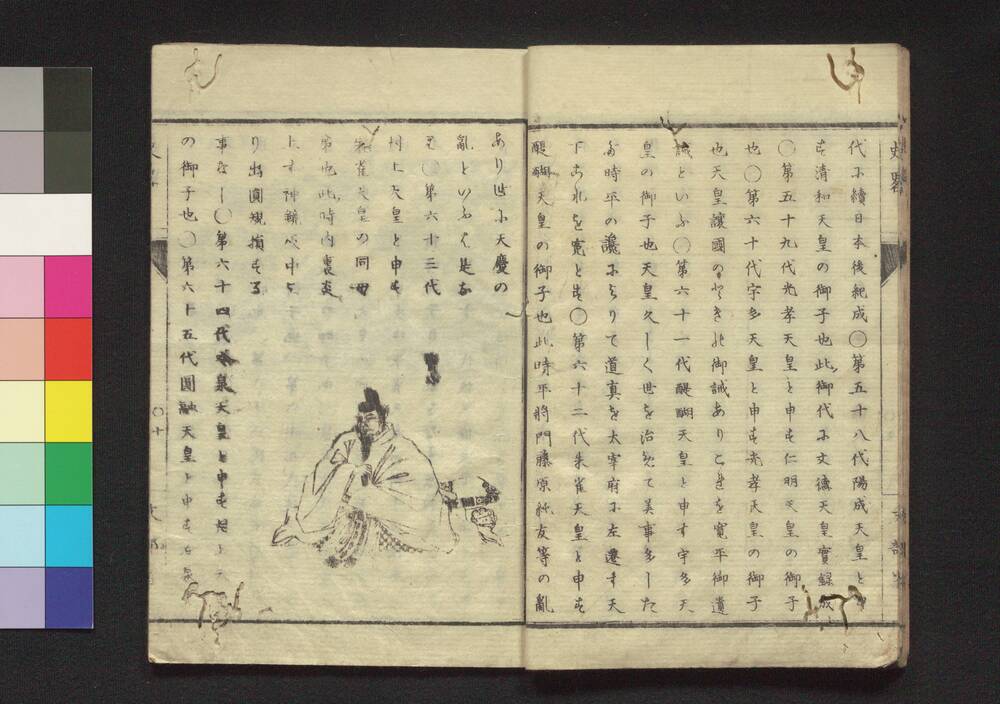 代ニ續日本後紀成〇第五十八代陽成天皇と申
す清和天皇の御子也此御代に文德天皇實録成
〇第五十九代光孝天皇と申す仁明天皇の御子
也〇第六十代宇多天皇と申す光孝天皇の御子
也天皇讓國のときの御誡ありこれを寛平御遺
誡といふ〇第六十一代醍醐天皇と申す宇多天
皇の御子也天皇久しく世を治めて美事多した
時平の讒によりて道真を太宰府に左遷す天
下あれを寃とす〇第六十二代朱雀天皇と申す
醍醐天皇の御子也此時平將門藤原純友等の亂
あり世に天慶の
亂といふ是な
〇第六十三代
村上天皇と申す
朱雀天皇の同母
弟也此時内裏炎
上す神鏡
り出圓規損する
事なし〇第六十四代冷泉天皇と申す
の御子也〇第六十五代圓融天皇と申す